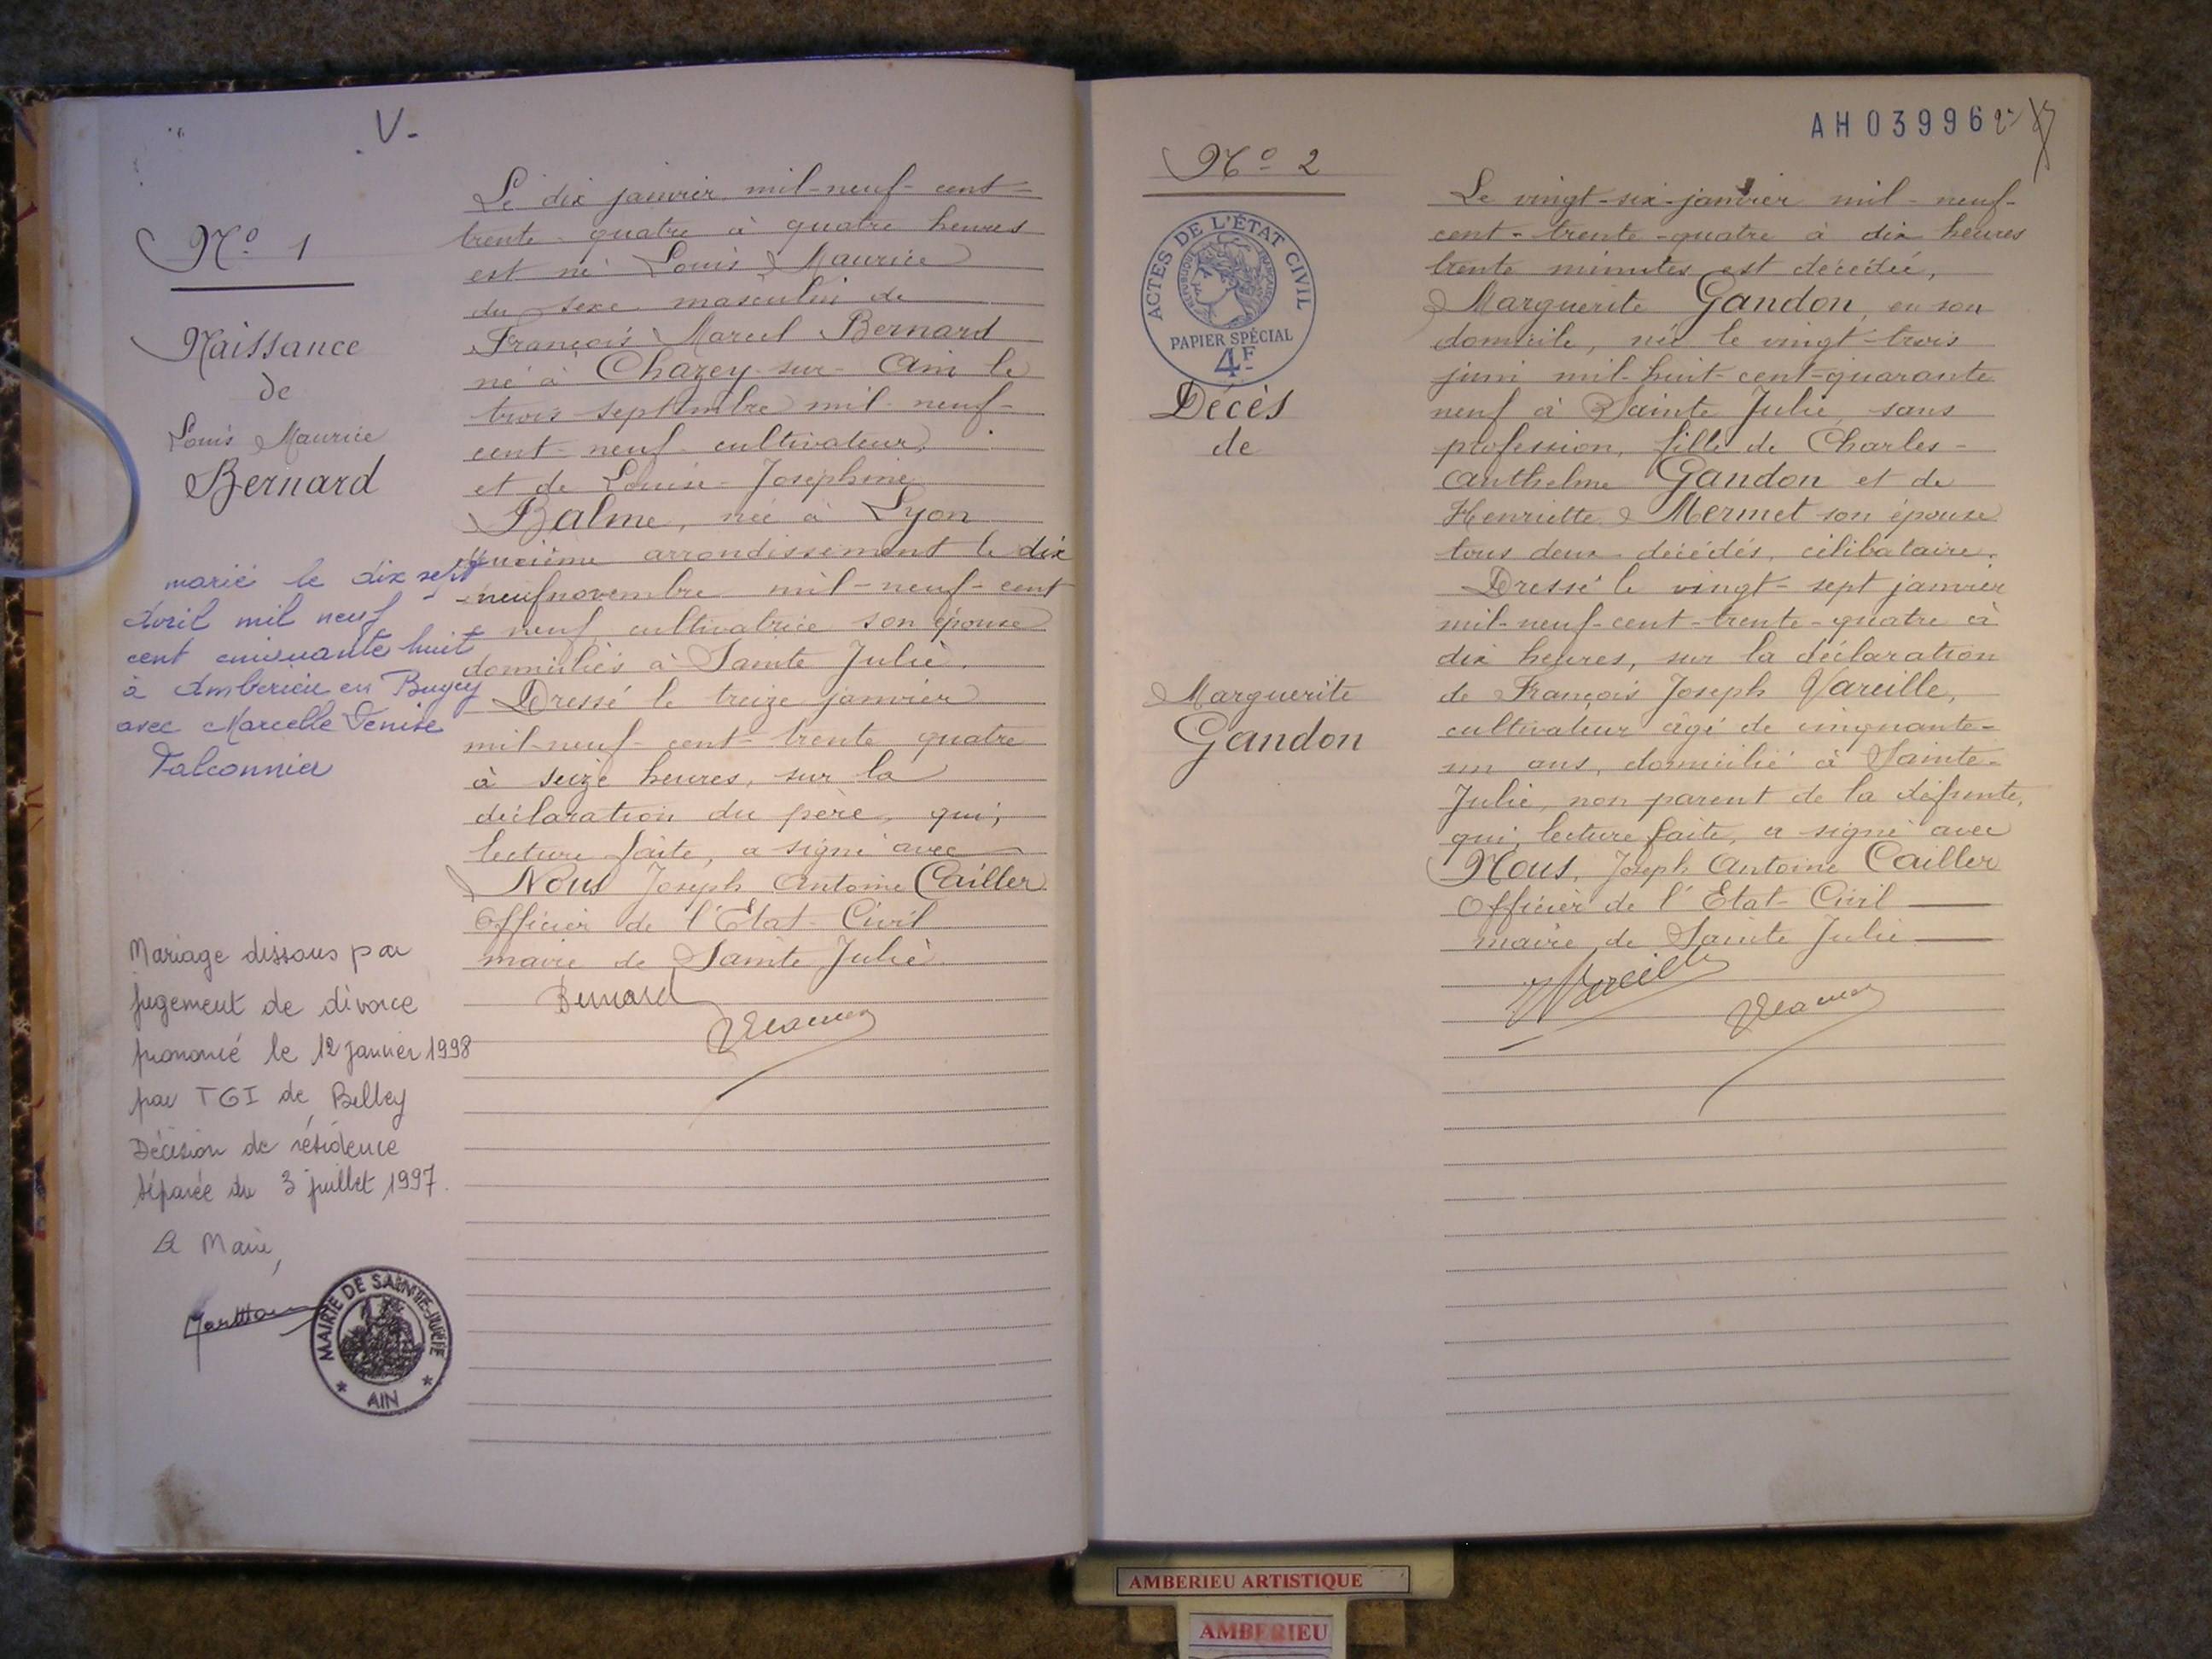 V-
Nº 1
Naissance
de
Louis Maurice
Bernard
marié le dix sept
Avril mil neuf
cent cinquante huit
à Amberieu en Bugey
avec Marcelle Denise
Falconnier
Mariage dissous par
jugement de divorce
prononcé le 12 janvier 1998
par TGI de Belley
Décision de résidence
séparée du 3 juillet 1997.
Le Maire,
MAIRIE DE SAINTE-JULIE
* AIN *
Le dix janvier mil-neuf-cent-
trente-quatre à quatre heures
est né Louis Maurice
du sexe masculin de
François Marcel Bernard
né à Chazey-sur-Ain le
trois septembre mil-neuf-
cent-neuf cultivateur,
et de Louise-Joséphine
Balme, née à Lyon
arrondissement le dix
neuf novembre mil-neuf-cent
neuf cultivatrice son épouse
domiciliés à Sainte Julie.
Dressé le treize janvier
mil-neuf-cent-trente quatre
à seize heures, sur la
déclaration du père, qui,
lecture faite, a signé avec
Nous Joseph Antoine Cailler
Officier de l'Etat-Civil
maire de Sainte Julie.
Bernard
AH03996
Nº 2
ACTES DE L'ÉTAT CIVIL
RÉPUBLIQUE FRANÇAISE
PAPIER SPÉCIAL
4F
Décès
de
Marguerite
Gandon
Le vingt-six-janvier mil-neuf-
cent-trente-quatre à dix heures
trente minutes est décédée,
Marguerite Gandon, en son
domicile, née le vingt-trois
juin mil-huit-cent-quarante
neuf à Sainte Julie, sans
profession, fille de Charles-
Anthelme Gandon et de
Henriette Mermet son épouse
tous deux décédés, célibataire.
Dressé le vingt-sept janvier
mil-neuf-cent-trente-quatre à
dix heures, sur la déclaration
de François Joseph Vareille,
cultivateur âgé de cinquante-
un ans, domicilié à Sainte-
Julie, non parent de la défunte,
qui, lecture faite, a signé avec
Nous, Joseph Antoine Cailler
Officier de l'Etat-Civil
maire de Sainte Julie
Vareille
AMBERIEU ARTISTIQUE
AMBERIEU